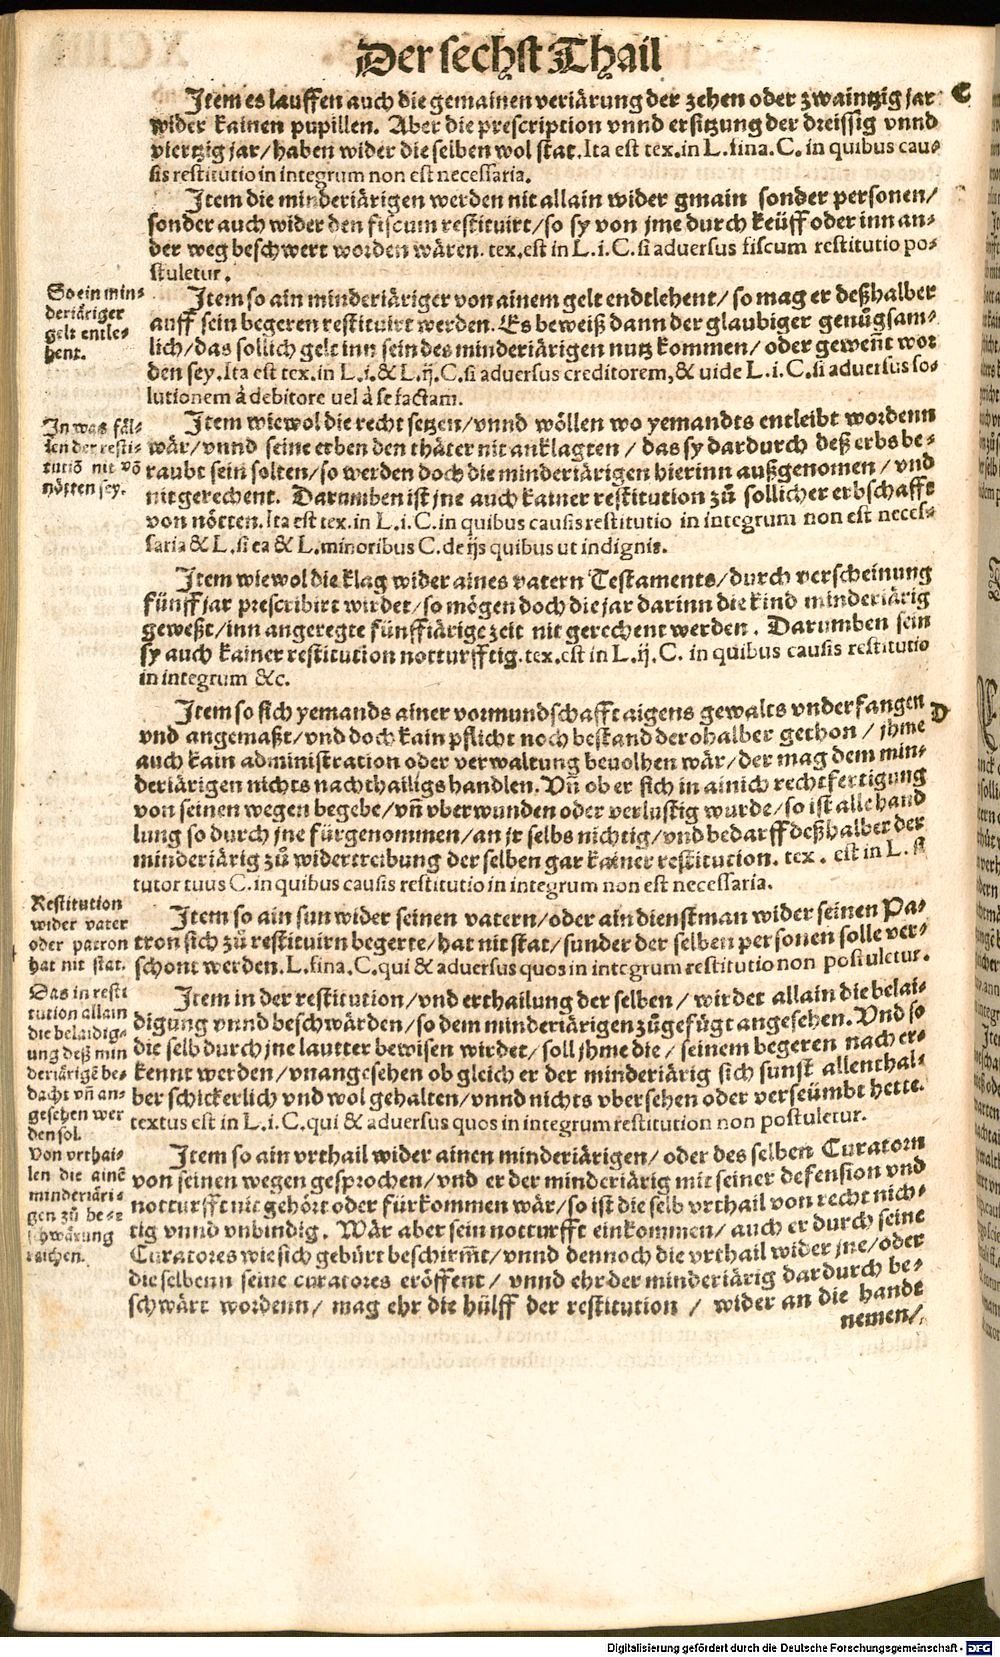 Der sechst Thail
Item es lauffen auch die gemainen veriärung der zehen oder zwaintzig jar
C
wider kainen pupillen. Aber die prescription vnnd ersitzung der dreissig vnnd
viertzig jar/ haben wider die selben wol stat. Ita est tex. in L. fina. C. in quibus cau-
sis restitutio in integrum non est necessaria.
Item die minderiärigen werden nit allain wider gmain sonder personen/
sonder auch wider den fiscum restituirt/ so sy von jme durch keüff oder inn an-
der weg beschwert worden wären. tex. est in L. i. C. si aduersus fiscum restitutio po-
stuletur.
So ein min-
deriäriger
gelt entle-
hent.
Item so ain minderiäriger von ainem gelt endtlehent/ so mag er deßhalber
auff sein begeren restituirt werden. Es beweiß dann der glaubiger genůgsam-
lich/ das sollich gelt inn sein des minderiärigen nutz kommen/ oder gewent wor
den sey. Ita est tex. in L. i. & L. ij. C. si aduersus creditorem, & uide L. i. C. si aduersus so-
lutionem à debitore uel à se factam.
In was fäl-
len der resti-
tutiō nit vō
nötten sey.
Item wiewol die recht setzen/ vnnd wöllen wo yemandts entleibt wordenn
wär/ vnnd seine erben den thäter nit anklagten/ das sy dardurch deß erbs be-
raubt sein solten/ so werden doch die minderiärigen hierinn außgenomen/ vnd
nit gerechent. Darumben ist jne auch kainer restitution zů sollicher erbschafft
von nötten. Ita est tex. in L. i. C. in quibus causis restitutio in integrum non est neces-
saria & L. si ea & L. minoribus C. de ijs quibus ut indignis.
Item wiewol die klag wider aines vatern Testaments/ durch verscheinung
fünff jar prescribirt wirdet/ so mögen doch die jar darinn die kind minderiärig
geweßt/ inn angeregte fünffiärige zeit nit gerechent werden. Darumben sein
sy auch kainer restitution notturfftig. tex. est in L. ij. C. in quibus causis restitutio
in integrum &c.
Item so sich yemands ainer vormundschafft aigens gewalts vnderfangen
D
vnd angemaßt/ vnd doch kain pflicht noch bestand derohalber gethon/ jhme
auch kain administration oder verwaltung beuolhen wär/ der mag dem min-
deriärigen nichts nachthailigs handlen. Vn̄ ob er sich in ainich rechtfertigung
von seinen wegen begebe/ vn̄ vberwunden oder verlustig wurde/ so ist alle hand
lung so durch jne fürgenommen/ an jr selbs nichtig/ vnd bedarff deßhalber der
minderiärig zů widertreibung der selben gar kainer restitution. tex. est in L. si
tutor tuus C. in quibus causis restitutio in integrum non est necessaria.
Restitution
wider vater
oder patron
hat nit stat.
Item so ain sun wider seinen vatern/ oder ain dienstman wider seinen Pa-
tron sich zů restituirn begerte/ hat nit stat/ sunder der selben personen solle ver-
schont werden. L. fina. C. qui & aduersus quos in integrum restitutio non postuletur.
Das in resti
tution allain
die belaidig-
ung deß min
deriärigē be-
dacht vn̄ an-
gesehen wer
den sol.
Item in der restitution/ vnd erthailung der selben/ wirdet allain die belai-
digung vnnd beschwärden/ so dem minderiärigen zůgefügt angesehen. Vnd so
die selb durch jne lautter bewisen wirdet/ soll jhme die/ seinem begeren nach er-
kennt werden/ vnangesehen ob gleich er der minderiärig sich sunst allenthal-
ber schickerlich vnd wol gehalten/ vnnd nichts vbersehen oder verseümbt hette.
textus est in L. i. C. qui & aduersus quos in integrum restitution non postuletur.
Von vrthai-
len die ainē
minderiäri-
gen zů be-
schwärung
raichen.
Item so ain vrthail wider ainen minderiärigen/ oder des selben Curatorn
von seinen wegen gesprochen/ vnd er der minderiärig mit seiner defension vnd
notturfft nit gehört oder fürkommen wär/ so ist die selb vrthail von recht nich-
tig vnnd vnbindig. Wär aber sein notturfft einkommen/ auch er durch seine
Curatores wie sich gebürt beschirm̄t/ vnnd dennoch die vrthail wider jne/ oder
die selbenn seine curatores eröffent/ vnnd ehr der minderiärig dardurch be-
schwärt wordenn/ mag ehr die hülff der restitution/ wider an die hande
nemen/
Digitalisierung gefördert durch die Deutsche Forschungsgemeinschaft - DFG